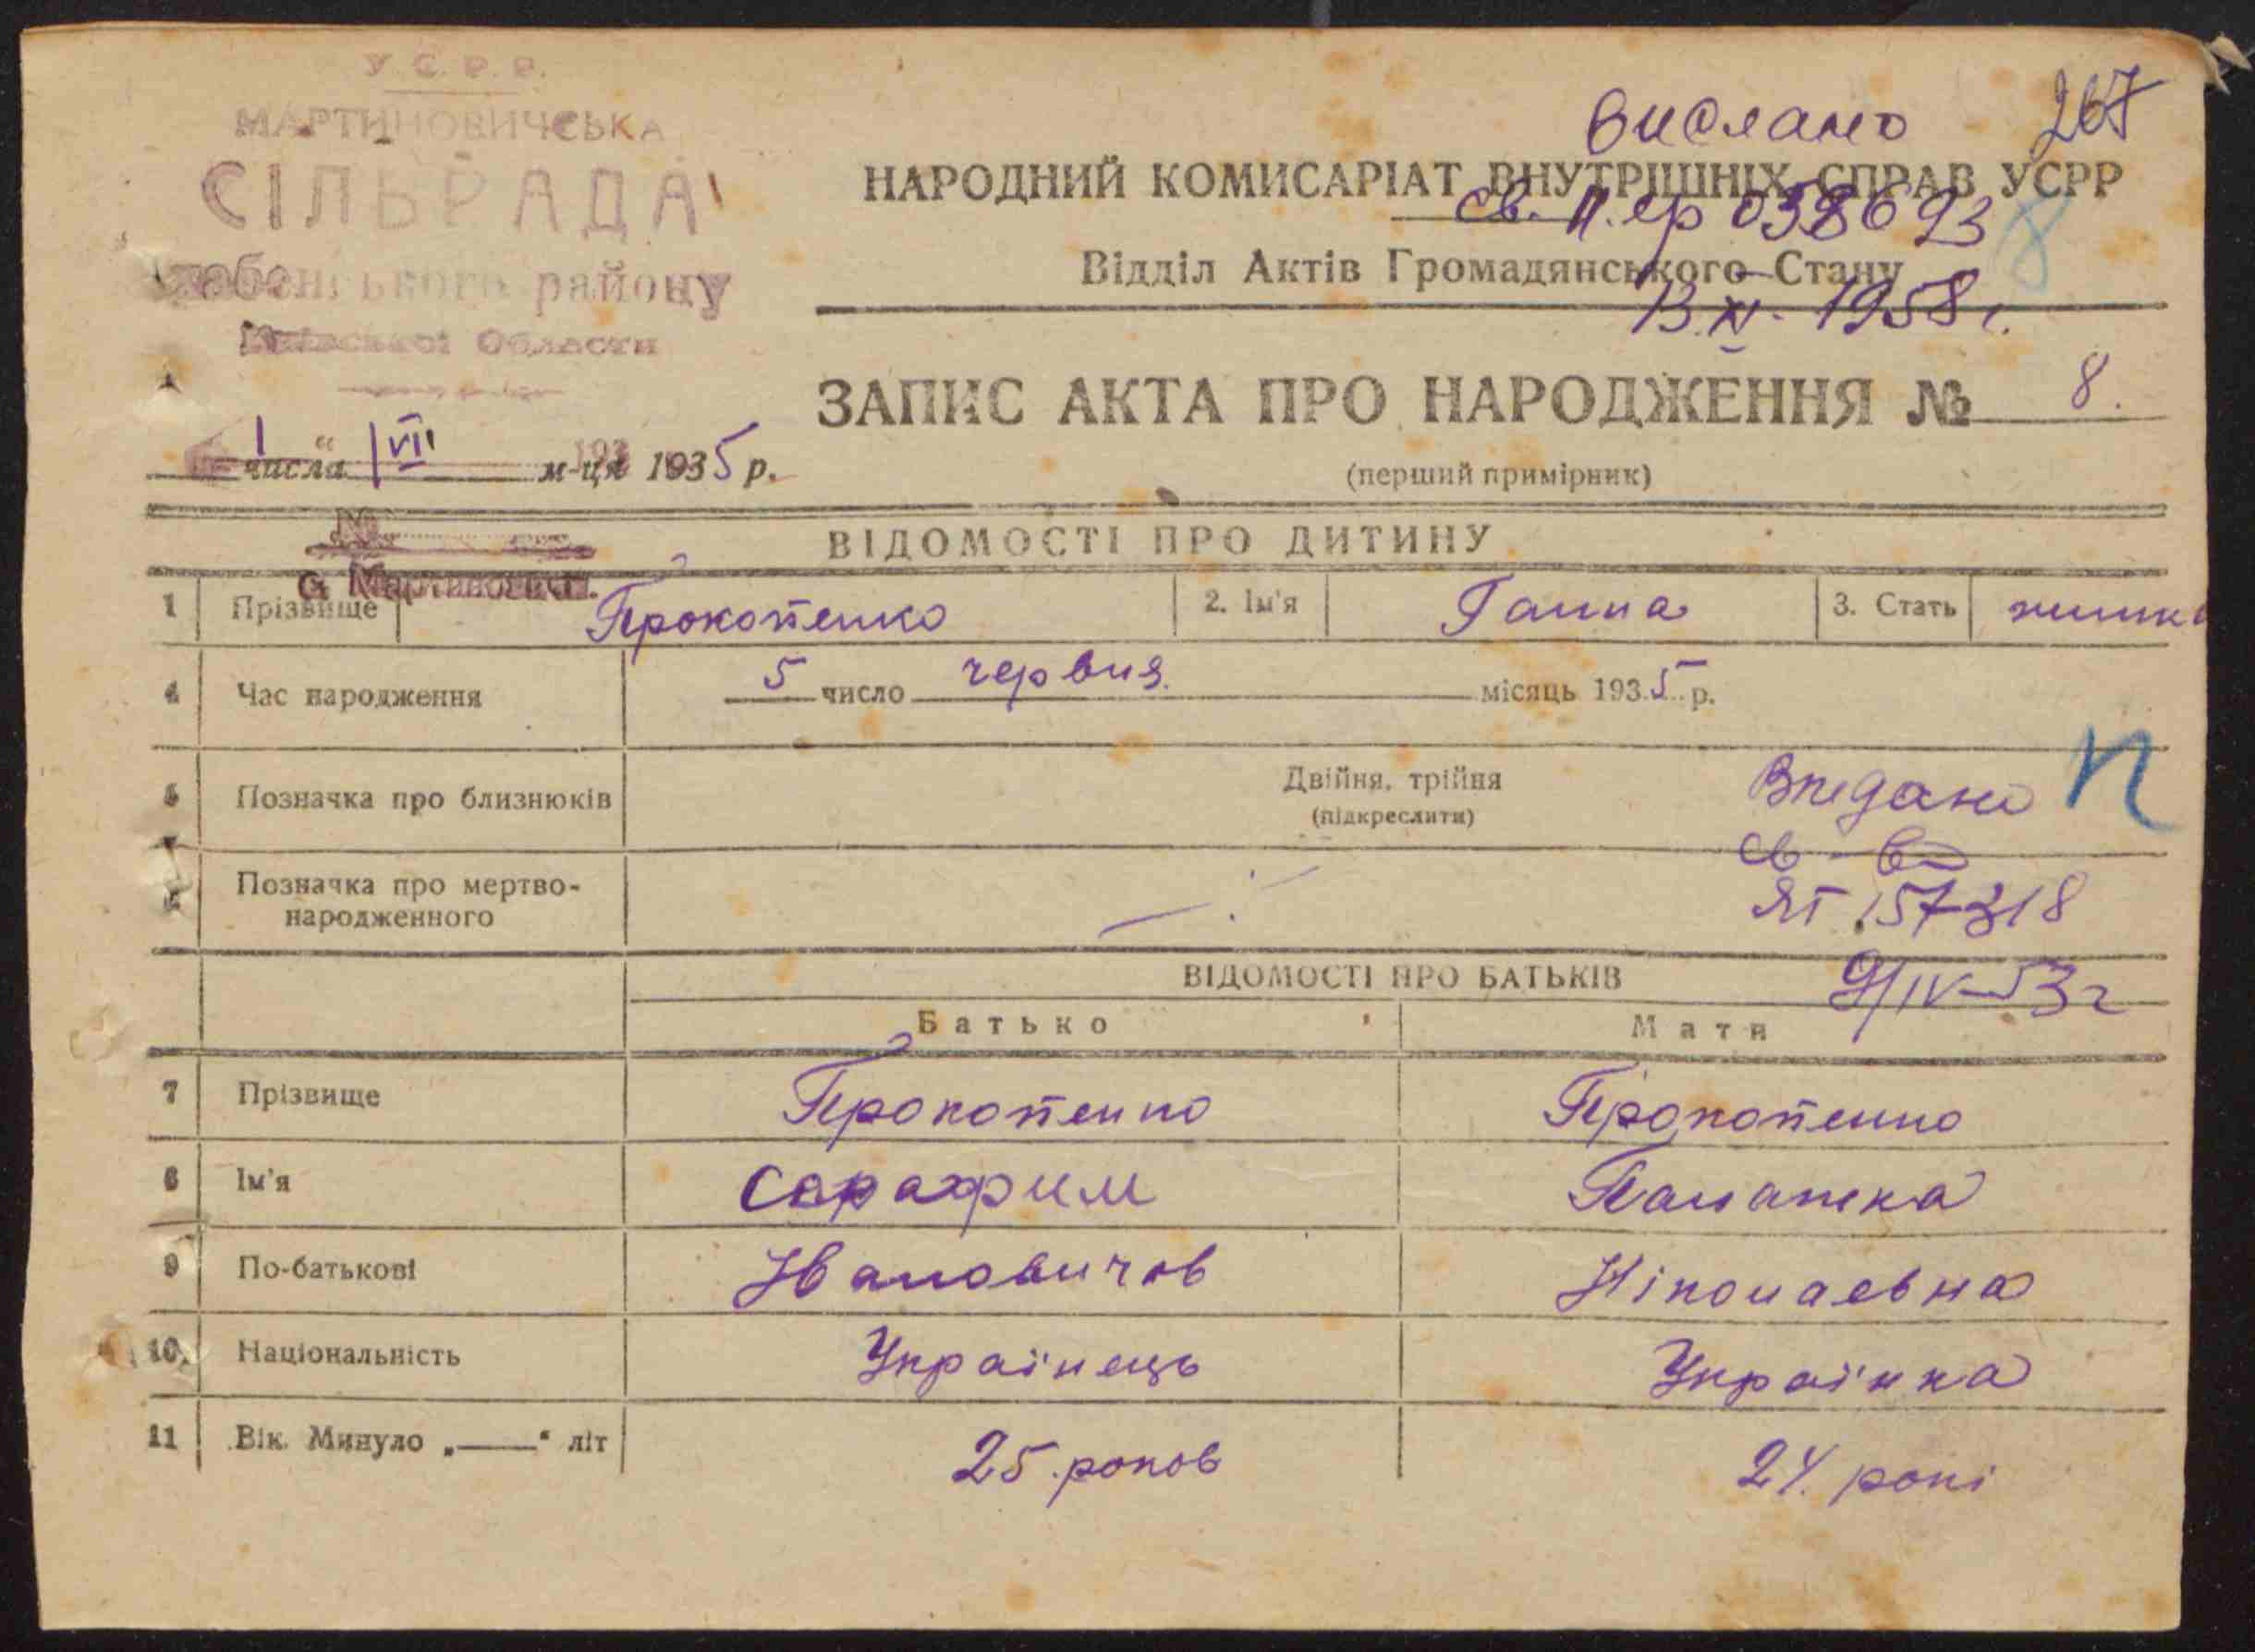 У.С.Р.Р.
МАРТИНОВИЧСЬКА
СІЛЬРАДА
району
Київської Области
Вислано 267
НАРОДНИЙ КОМИСАРІАТ ВНУТРІШНІХ СПРАВ УСРР
св. п. ер 038693
8
Відділ Актів Громадянського Стану
13.XI. 1958 г.
ЗАПИС АКТА ПРО НАРОДЖЕННЯ № 8.
(перший примірник)
1 числа VII м-ця 1935 р.
№
с. Мартиновичі.
ВІДОМОСТІ ПРО ДИТИНУ
1 Прізвище Прокопенко 2. Ім'я Ганна 3. Стать
4 Час народження 5 число червня місяць 1935 р.
5 Позначка про близнюків Двійня, трійня
(підкреслити)
Видано
п
св-во
ЯТ 157318
9/IV-53 г
6 Позначка про мертво-
народженного
ВІДОМОСТІ ПРО БАТЬКІВ
Батько Мати
7 Прізвище Прокопенко Прокопенко
8 Ім'я Серафим
9 По-батькові Івановичов Ніколаевна
10 Національність Українець Українка
11 Вік. Минуло „——“ літ 25. роков 24. рокі